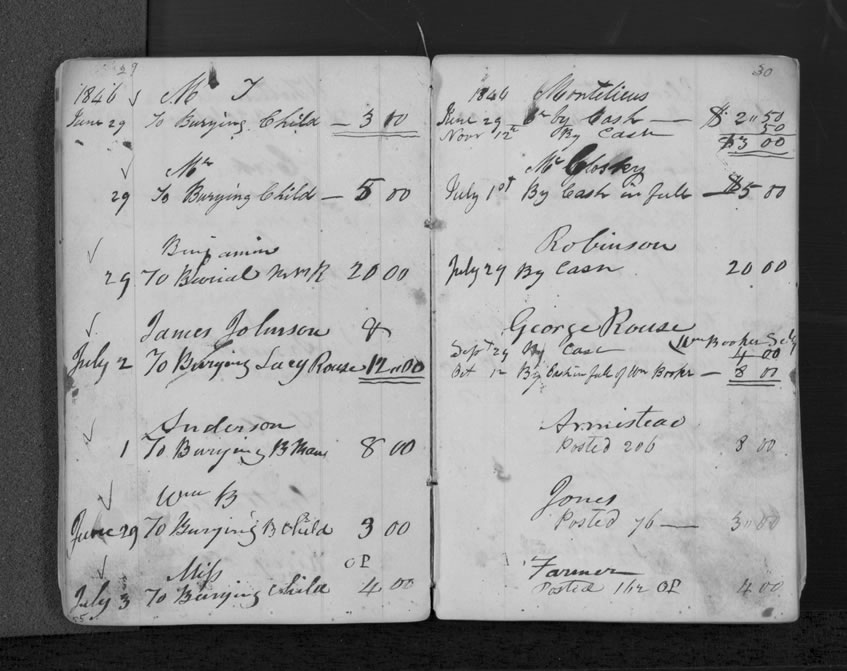 29
1846 Mr T
June 29 To Burying Child — 3 00
Mr
29 To Burying Child — 5 00
Benjamin
29 To Burial 20 00
James Johnson &
July 2 To Burying Lucy Rouse 12 " 00
Anderson
1 To Burying B Man 8 00
Wm B
June 29 To Burying B Child 3 00
Miss OP
July 3 To Burying Child 4 00
30
1846 Monteticus
June 29 Cr by Cash — $ 2 " 50
Novr 12th By Cash 50
$3 00
McCloskey
July 1st By Cash in full — $5 00
Robinson
July 29 By Cash 20 00
George Rouse
Wm Booker Sely
Sept 29 By Cash 4 00
Oct 12 By Cash in full of Wm Booker — 8 00
Armistead
Posted 206 8 00
Jones
Posted 76 — 3 " 00
Farmer
Posted 162 OP 4 00